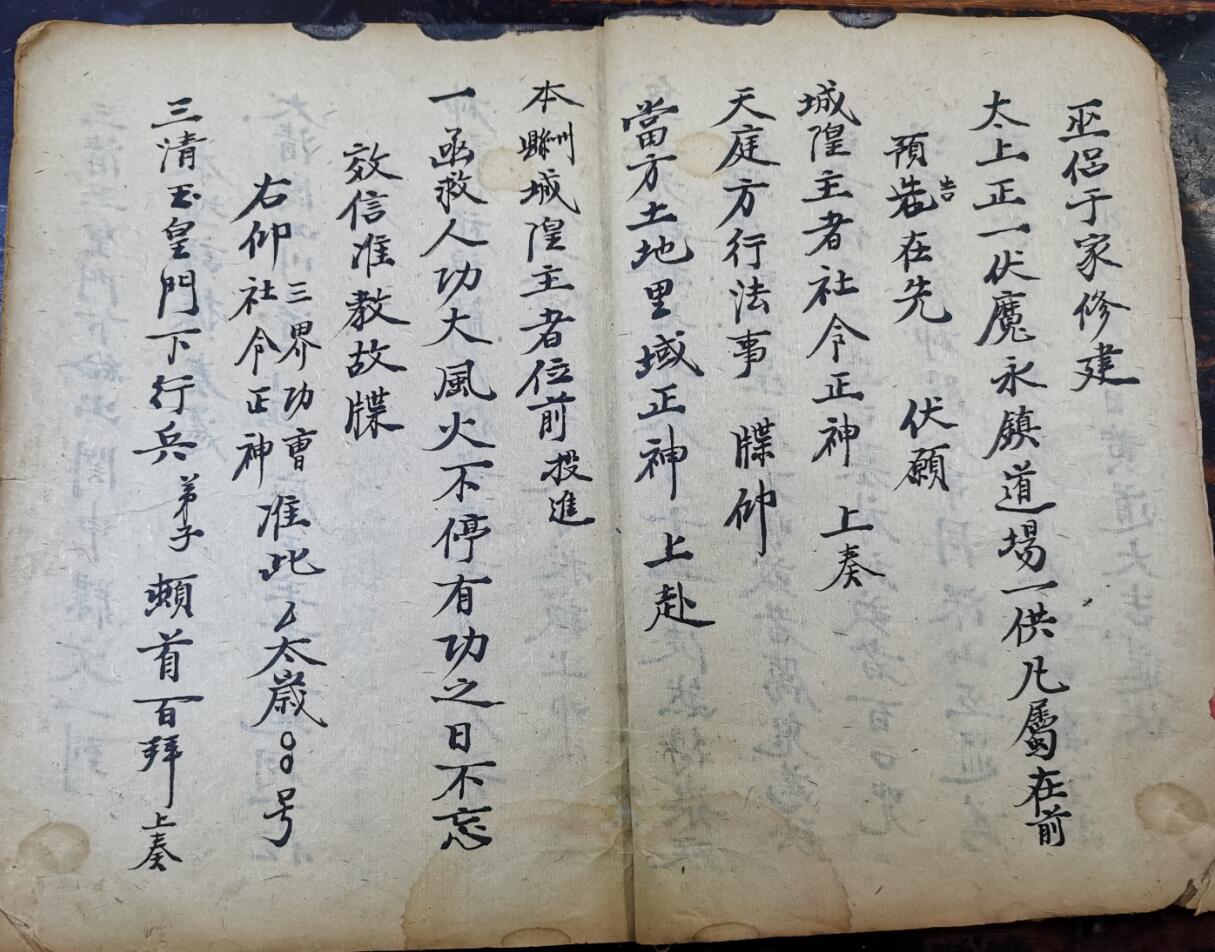 巫侣于家修建
太上正一伏魔永鎮道場一供凡屬在前
預告在先 伏願
城隍主者社令正神 上奏
天庭方行法事 牒仰
當方土地里域正神上赴
本州縣城隍主者位前投進
一函救人功大風火不停有功之日不忘
效信准教故牒
右仰社令正神三界功曹准此 太歲 号
三清玉皇門下行兵弟子頼首百拜上奏